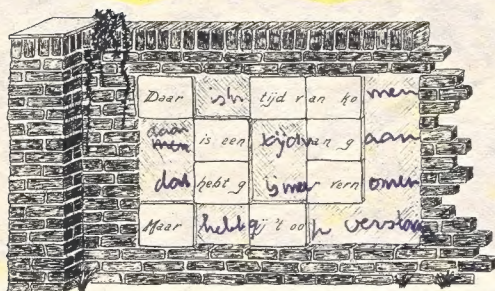 Daar is 'n tijd van komen
daar is een tijd van gaan
dat hebt gij meer vernomen
Maar hebt gij 't ook verstaan